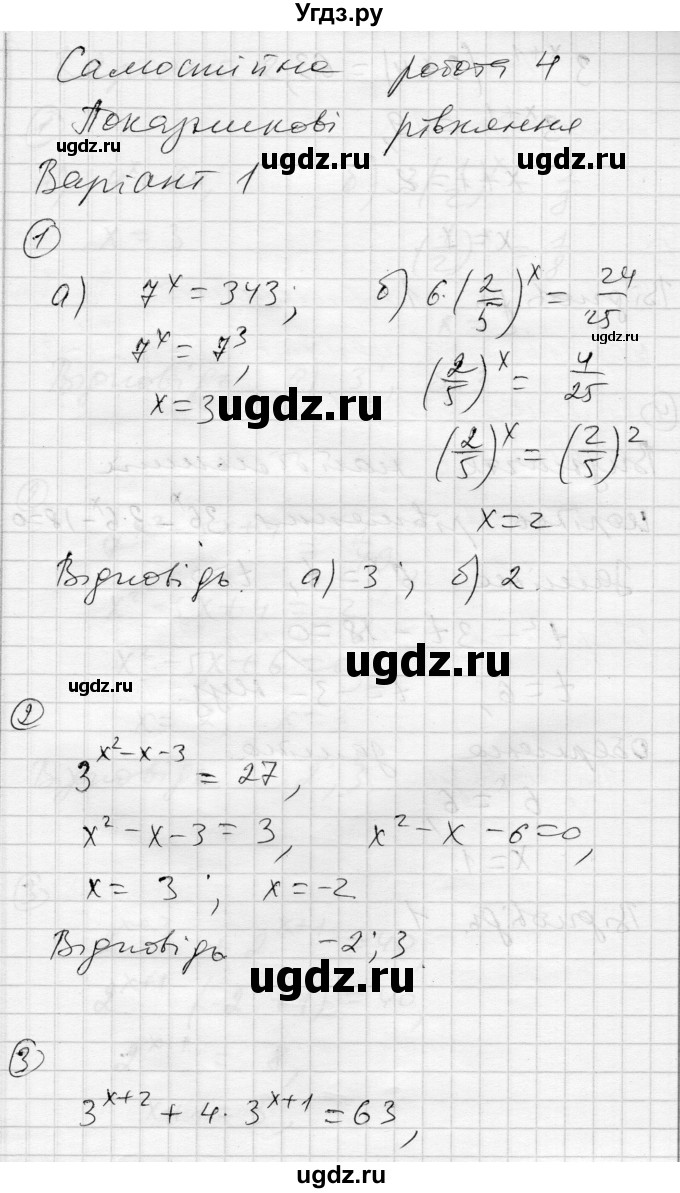 Угдз.ру
Самостійна робота 4
Показникові рівняння
ugdz.ru ugdz.ru
Варіант 1
①
а) 7^x = 343; б) 6·(2/5)^x = 24/25
ugdz.ru
7^x = 7^3, (2/5)^x = 4/25
x = 3 ugdz.ru
(2/5)^x = (2/5)^2
x = 2
Відповідь. а) 3; б) 2.
ugdz.ru
ugdz.ru
②
3^(x²-x-3) = 27,
x² - x - 3 = 3, x² - x - 6 = 0,
x = 3; x = -2
Відповідь -2; 3.
ugdz.ru
③
3^(x+2) + 4·3^(x+1) = 63,
ugdz.ru